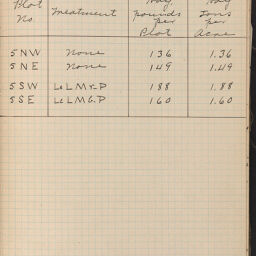 Plot No. Treatment Hay pounds per Plot Hay Tons per Acre
5 NW None 136 1.36
5 NE None 149 1.49
5 SW Le L M r-P 188 1.88
5 SE Le L M G.P 160 1.60